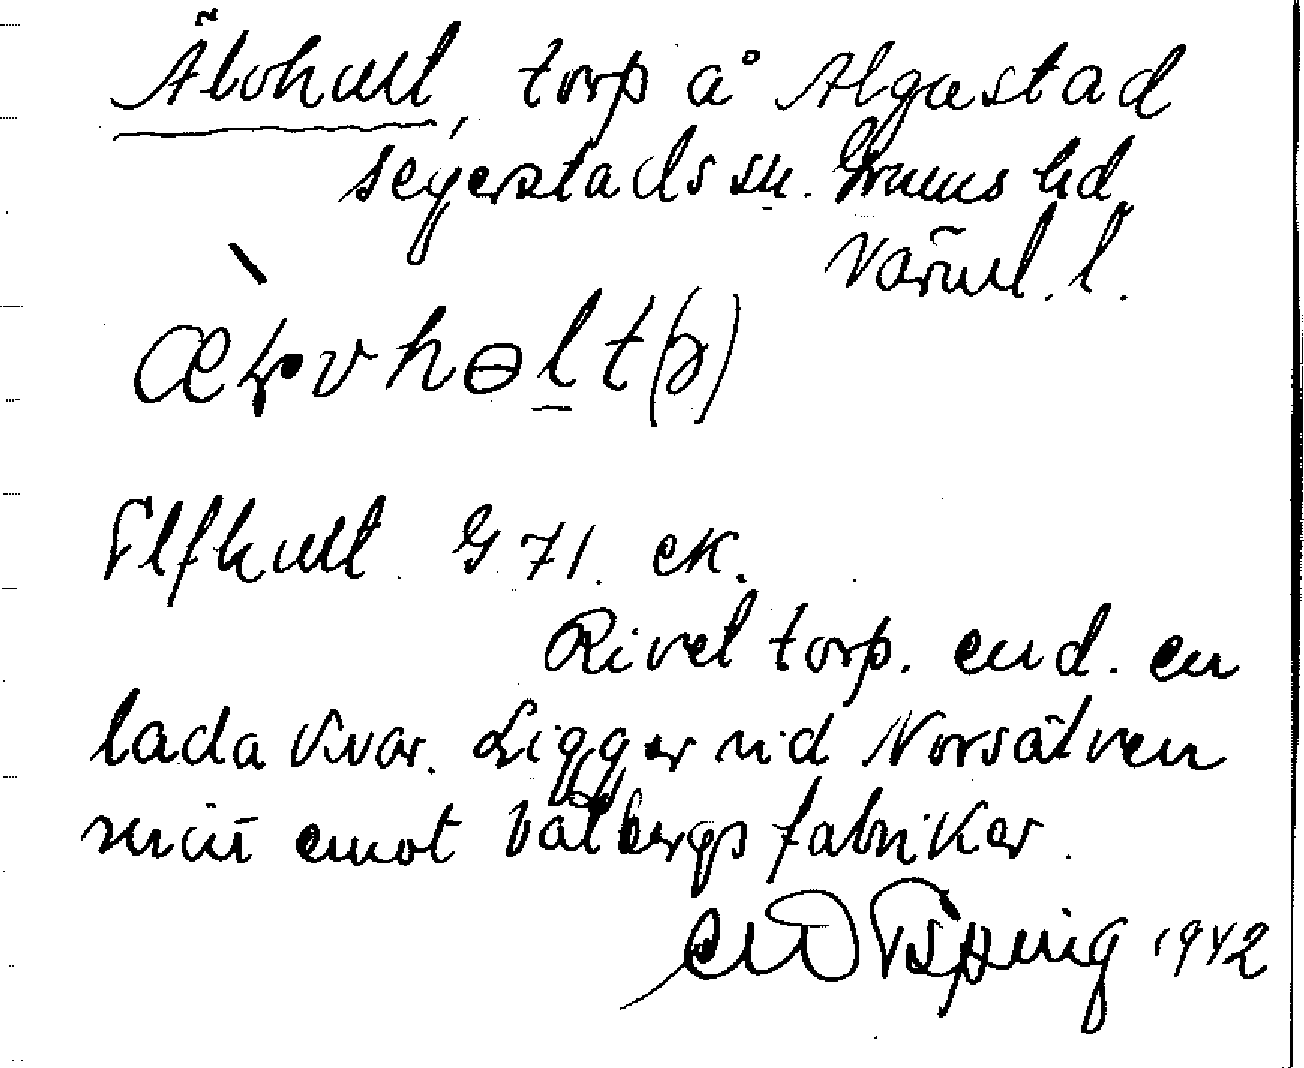 Älvhult, torp å Algastad
Segerstads sn. Grums hd.
Värml. l.
Elfhult. G 71. ek.
Rivet torp. end. en
lada kvar. Ligger vid Norsälven
mitt emot Vålbergs fabriker.
1942